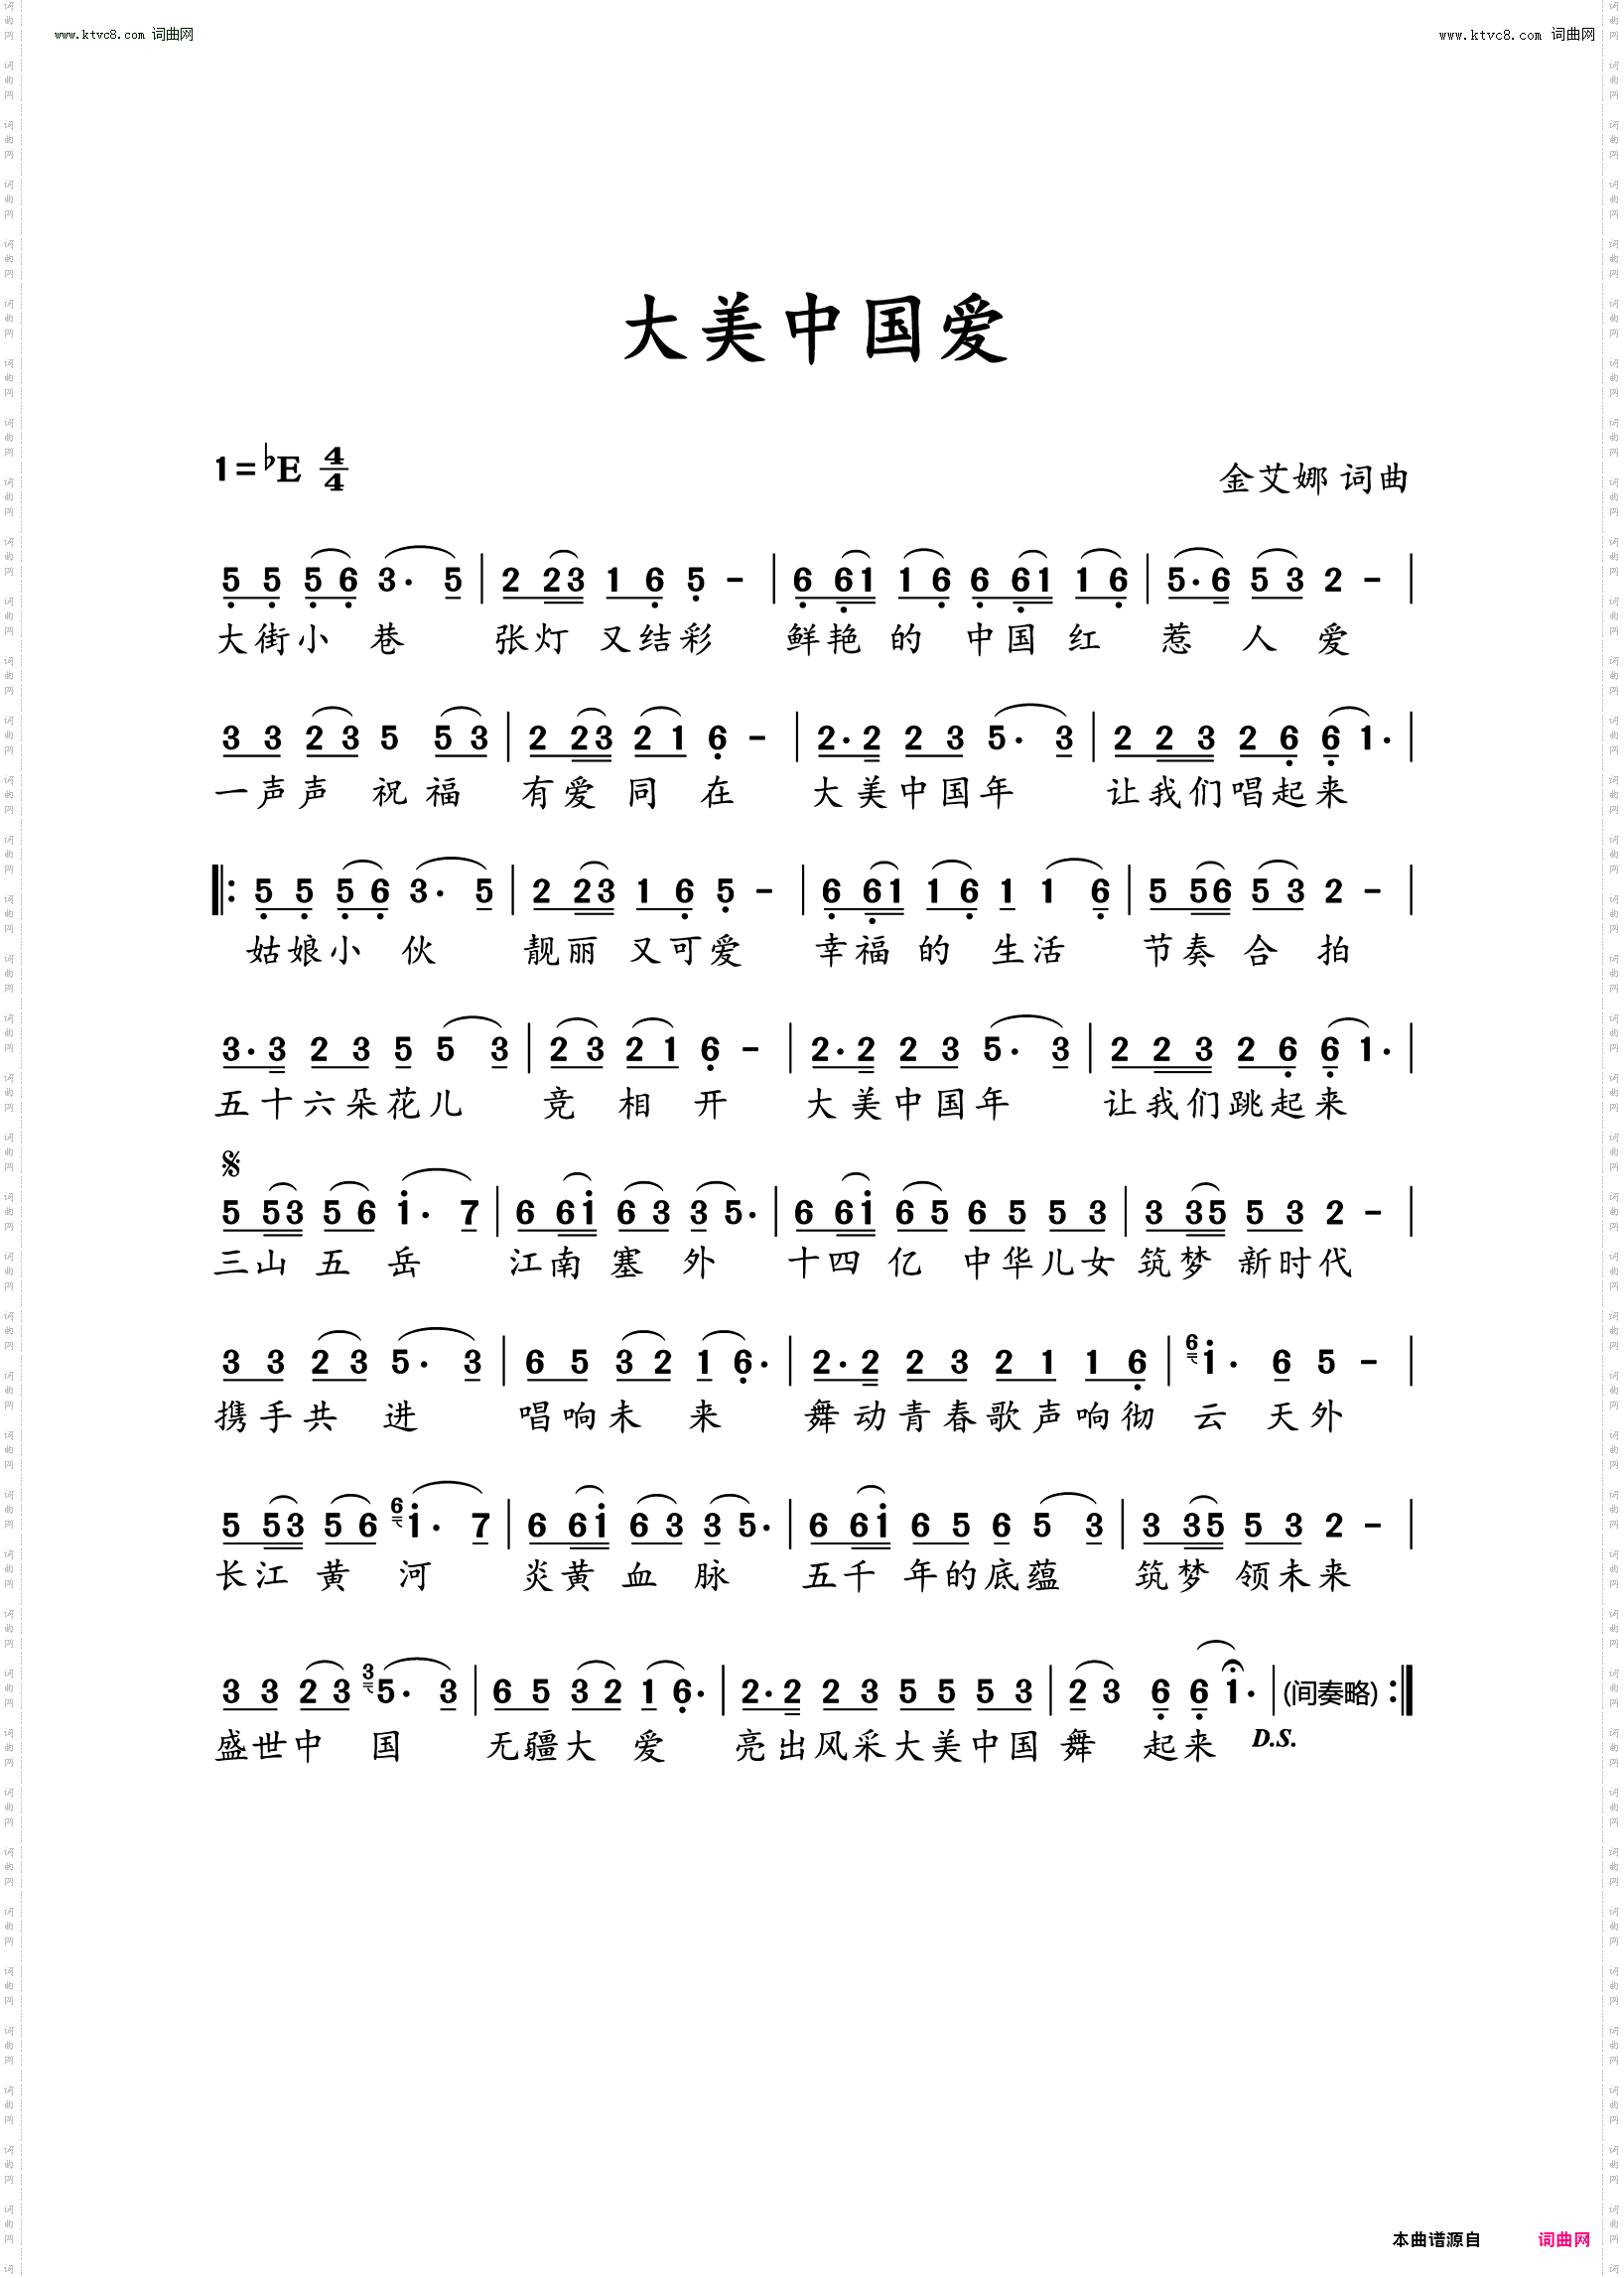 www.ktvc8.com 词曲网
www.ktvc8.com 词曲网
大美中国爱
1=♭E 4/4
金艾娜 词曲
5 5 5 6 3· 5 | 2 2 3 1 6 5 - | 6 6 1 1 6 6 6 1 1 6 | 5· 6 5 3 2 - |
大街小 巷 张灯 又结彩 鲜艳 的 中国 红 惹 人 爱
3 3 2 3 5 5 3 | 2 2 3 2 1 6 - | 2· 2 2 3 5· 3 | 2 2 3 2 6 6 1· |
一声声 祝福 有爱 同 在 大美中国年 让我们唱起来
5 5 5 6 3· 5 | 2 2 3 1 6 5 - | 6 6 1 1 6 1 1 6 | 5 5 6 5 3 2 - |
姑娘小 伙 靓丽 又可爱 幸福 的 生活 节奏 合 拍
3· 3 2 3 5 5 3 | 2 3 2 1 6 - | 2· 2 2 3 5· 3 | 2 2 3 2 6 6 1· |
五十六朵花儿 竞 相 开 大美中国年 让我们跳起来
5 5 3 5 6 1· 7 | 6 6 1 6 3 3 5· | 6 6 1 6 5 6 5 5 3 | 3 3 5 5 3 2 - |
三山 五 岳 江南 塞 外 十四 亿 中华儿女 筑梦 新时代
3 3 2 3 5· 3 | 6 5 3 2 1 6· | 2· 2 2 3 2 1 1 6 | 6 1· 6 5 - |
携手共 进 唱响未 来 舞动青春歌声响彻 云 天外
5 5 3 5 6 6 1· 7 | 6 6 1 6 3 3 5· | 6 6 1 6 5 6 5 3 | 3 3 5 5 3 2 - |
长江 黄 河 炎黄 血 脉 五千 年的底蕴 筑梦 领未来
3 3 2 3 3 5· 3 | 6 5 3 2 1 6· | 2· 2 2 3 5 5 5 3 | 2 3 6 6 1· | (间奏略) :|
盛世中 国 无疆大 爱 亮出风采大美中国 舞 起来 D.S.
本曲谱源自 词曲网